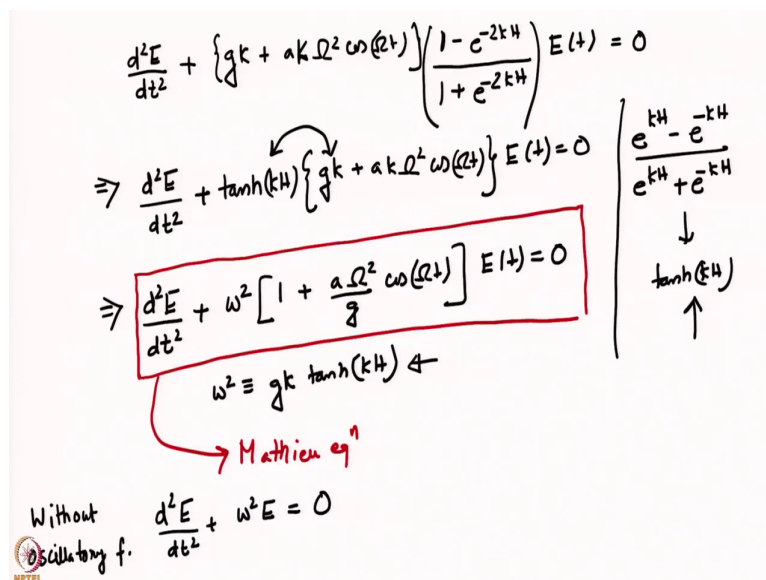 d²E/dt² + {gk + akΩ² cos(Ωt)} ((1 - e^{-2kH})/(1 + e^{-2kH})) E(t) = 0
⇒ d²E/dt² + tanh(kH) {gk + akΩ² cos(Ωt)} E(t) = 0
(e^{kH} - e^{-kH})/(e^{kH} + e^{-kH})
↓
tanh(kH)
↑
⇒ d²E/dt² + ω² [1 + (aΩ²/g) cos(Ωt)] E(t) = 0
ω² ≡ gk tanh(kH) ⇐
→ Mathieu eqⁿ
Without
oscillatory f.
d²E/dt² + ω²E = 0
NPTEL